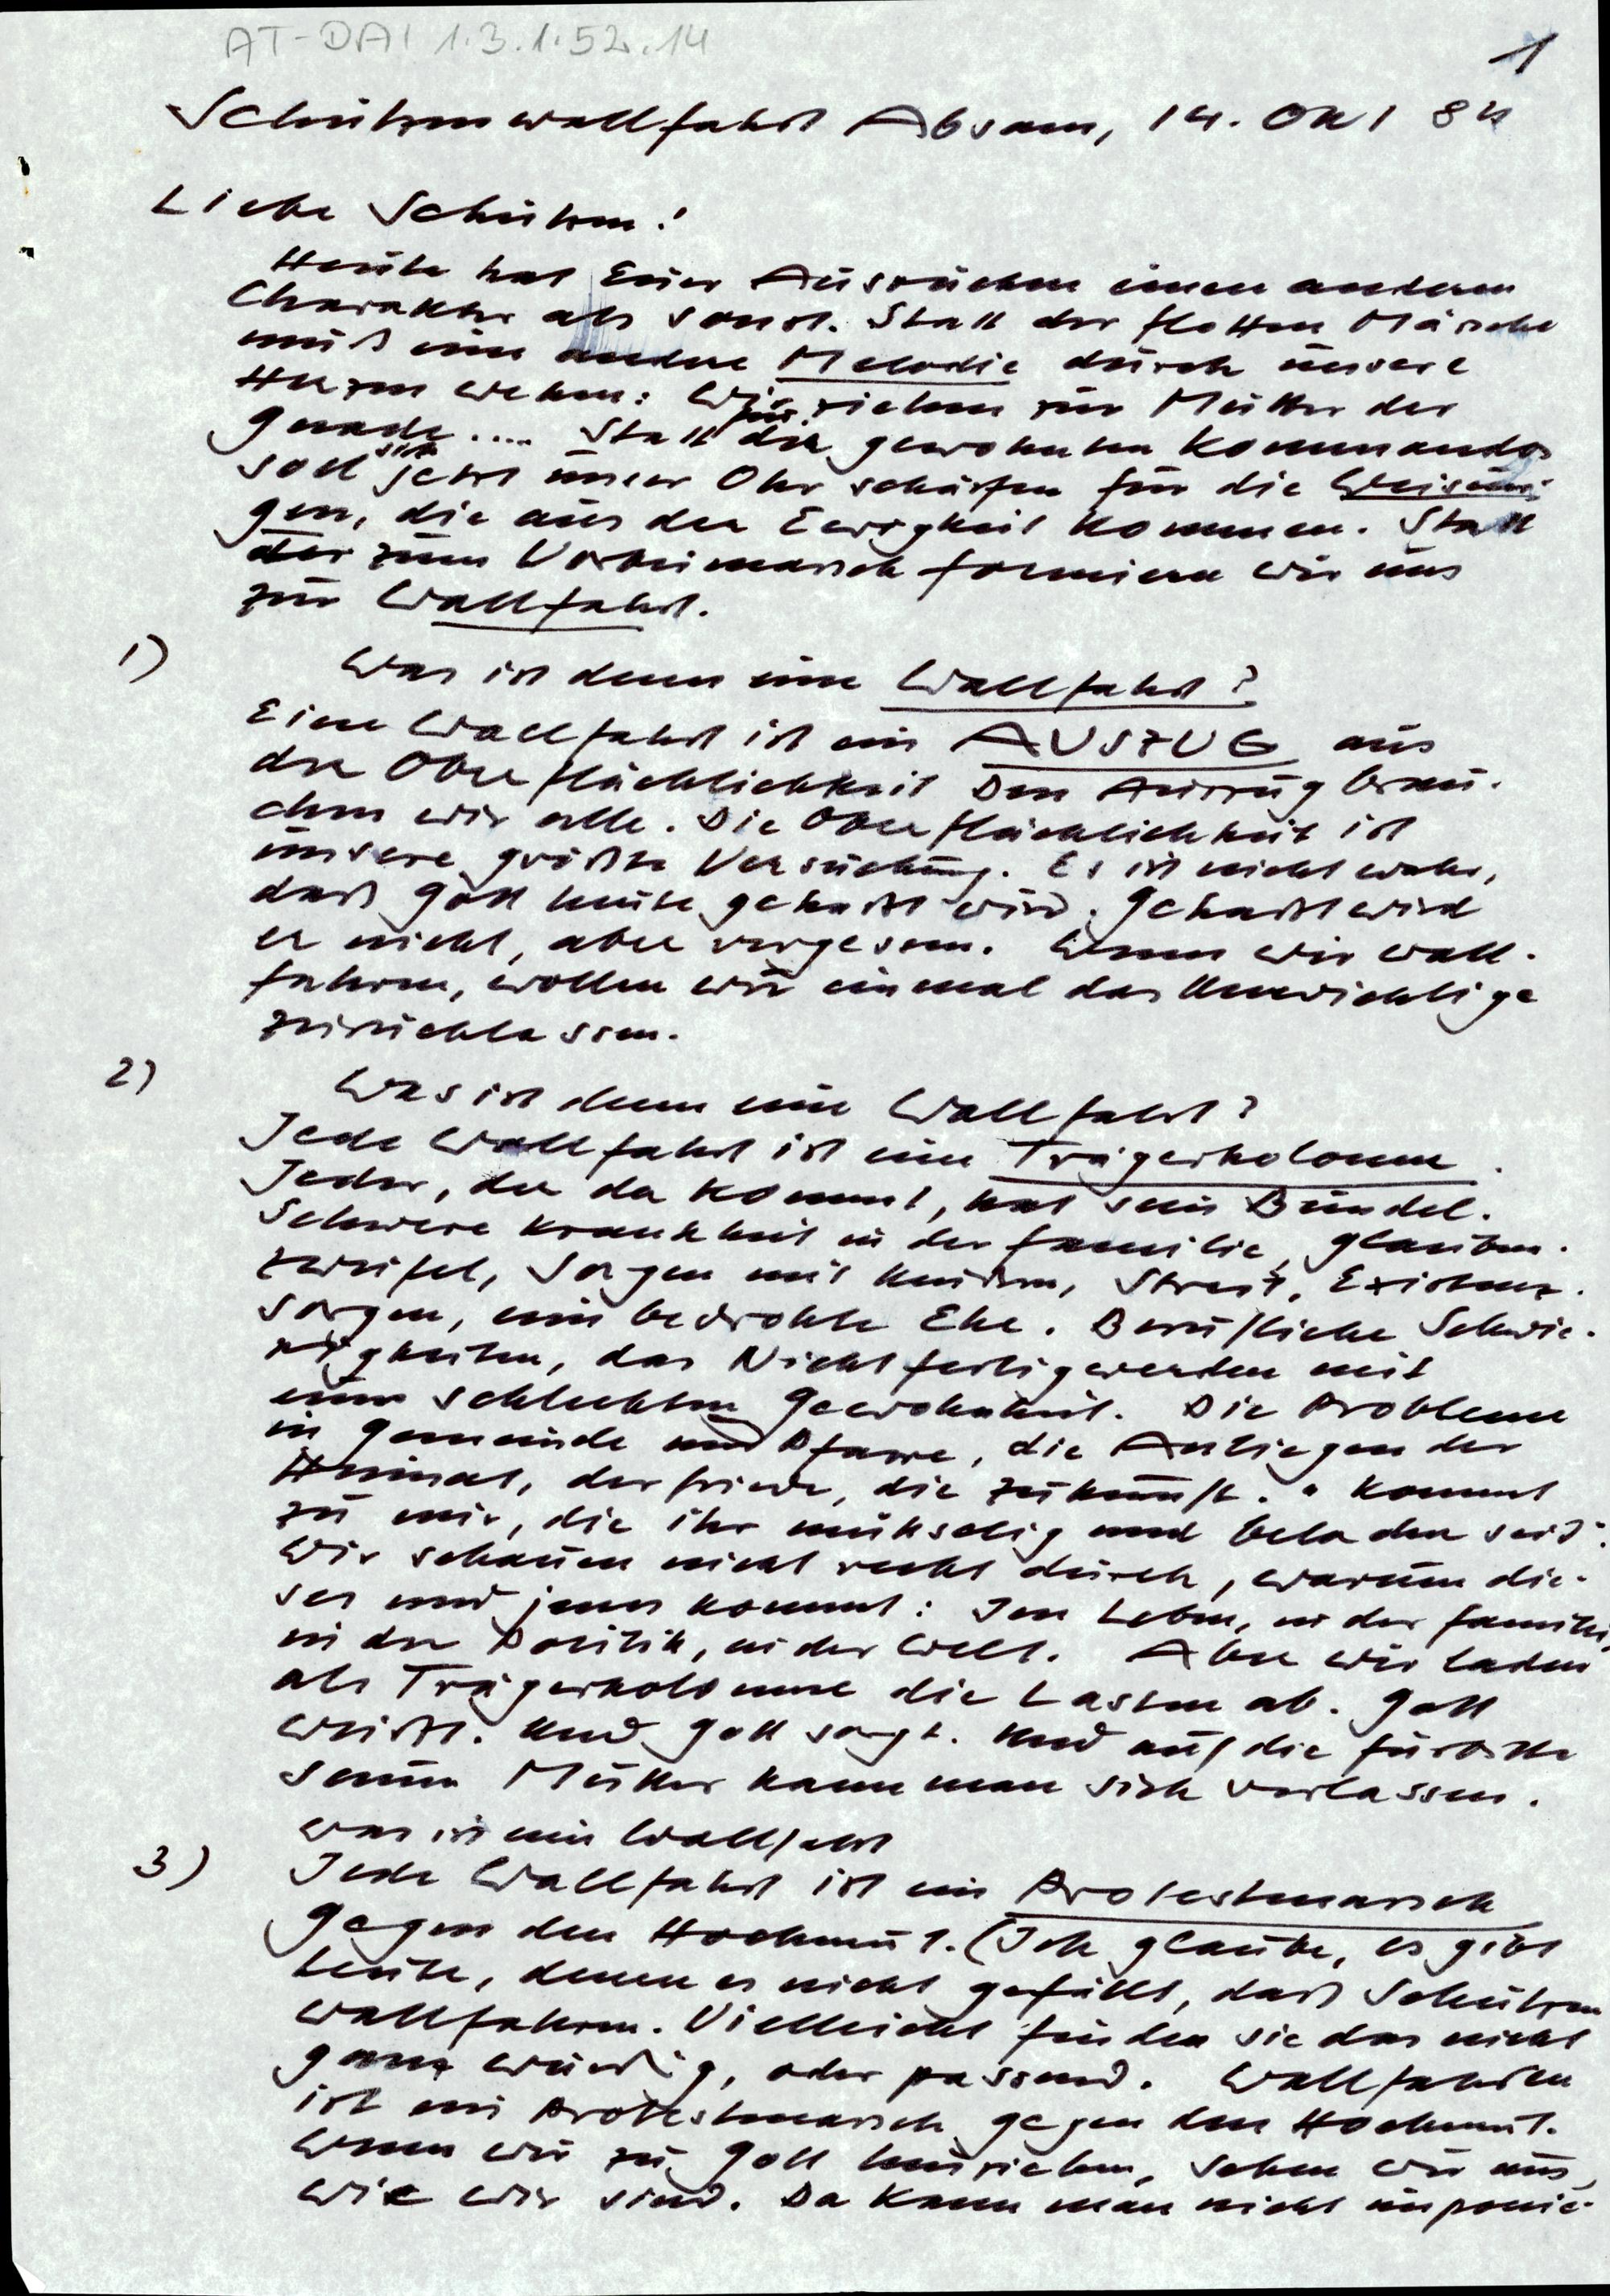 AT-DAI 1.3.1.52.14
1
Schützenwallfahrt Absam, 14. Okt 84
Liebe Schützen!
Heute hat Euer Ausrücken einen anderen
Charakter als sonst. Statt der flotten Märsche
muß eine andere Melodie durch unsere
Herzen wehen: Wir ziehen zur Mutter der
Gnade .... Statt für die gewohnten Kommandos
soll sich jetzt unser Ohr schärfen für die Weisun-
gen, die aus der Ewigkeit kommen. Statt
der zum Vorbeimarsch formieren wir uns
zur Wallfahrt.
1)
Was ist denn eine Wallfahrt?
Eine Wallfahrt ist ein AUSZUG aus
der Oberflächlichkeit Den Auszug brau-
chen wir alle. Die Oberflächlichkeit ist
unsere größte Versuchung. Es ist nicht wahr,
daß Gott heute gehaßt wird. Gehaßt wird
er nicht, aber vergessen. Wenn wir wall-
fahren, wollen wir einmal das Unwichtige
zurücklassen.
2)
Was ist denn eine Wallfahrt?
Jede Wallfahrt ist eine Trägerkolonne.
Jeder, der da kommt, hat sein Bündel.
Schwere Krankheit in der Familie, Glaubens-
zweifel, Sorgen mit Kindern, Streit, Existenz-
sorgen, eine bedrohte Ehe. Berufliche Schwie-
rigkeiten, das Nichtfertigwerden mit
einer schlechten Gewohnheit. Die Probleme
in Gemeinde und Pfarre, die Anliegen der
Heimat, der Friede, die Zukunft. "Kommt
zu mir, die ihr mühselig und beladen seid".
Wir schauen nicht recht durch, warum die-
ses und jenes kommt: Im Leben, in der Familie,
in der Politik, in der Welt. Aber wir laden
als Trägerkolonne die Lasten ab. Gott
weißt. Und Gott sorgt. Und auf die Fürbitte
seiner Mutter kann man sich verlassen.
was ist eine Wallfahrt
3)
Jede Wallfahrt ist ein Protestmarsch
gegen den Hochmut. (Ich glaube, es gibt
Leute, denen es nicht gefällt, daß Schützen
wallfahren. Vielleicht finden sie das nicht
ganz würdig, oder passend. Wallfahrten
ist ein Protestmarsch gegen den Hochmut.
Wenn wir zu Gott hinziehen, sehen wir uns,
wie wir sind. Da kann man nicht imponie-